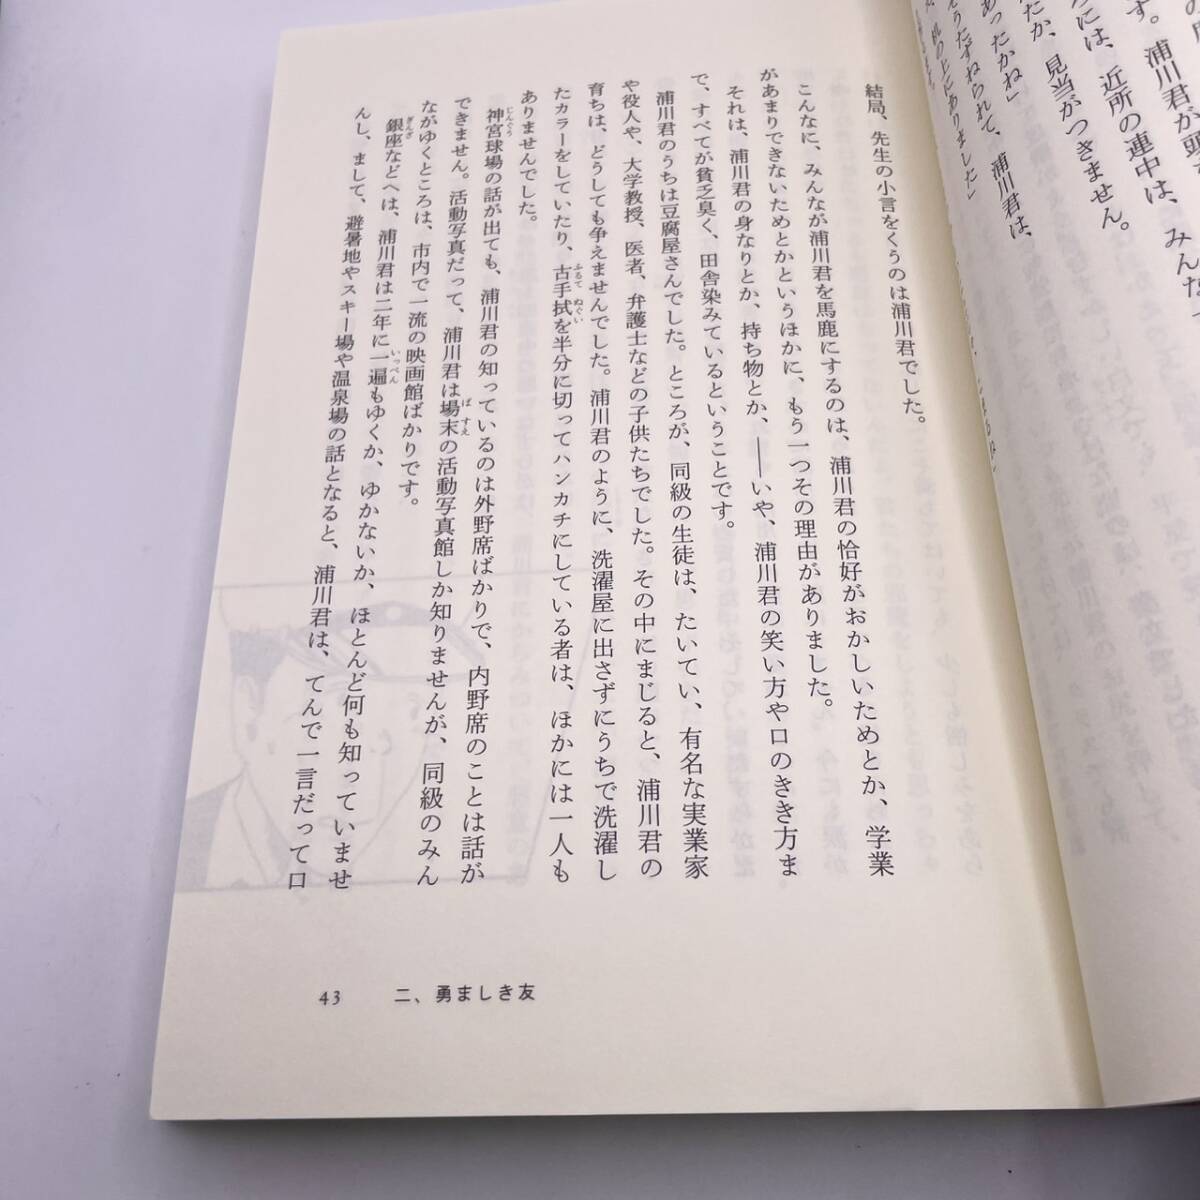 の
す。浦川君が頭
には、近所の連中は、みんな
たか、見当がつきません。
あったかね」
そうたずねられて、浦川君は、
机の上にありました」
結局、先生の小言をくうのは浦川君でした。
こんなに、みんなが浦川君を馬鹿にするのは、浦川君の恰好がおかしいためとか、学業
があまりできないためとかというほかに、もう一つその理由がありました。
それは、浦川君の身なりとか、持ち物とか、――いや、浦川君の笑い方や口のきき方ま
で、すべてが貧乏臭く、田舎染みているということです。
浦川君のうちは豆腐屋さんでした。ところが、同級の生徒は、たいてい、有名な実業家
や役人や、大学教授、医者、弁護士などの子供たちでした。その中にまじると、浦川君の
育ちは、どうしても争えませんでした。浦川君のように、洗濯屋に出さずにうちで洗濯し
たカラーをしていたり、古手拭を半分に切ってハンカチにしている者は、ほかには一人も
ありませんでした。
神宮球場の話が出ても、浦川君の知っているのは外野席ばかりで、内野席のことは話が
できません。活動写真だって、浦川君は場末の活動写真館しか知りませんが、同級のみん
ながゆくところは、市内で一流の映画館ばかりです。
銀座などへは、浦川君は二年に一遍もゆくか、ゆかないか、ほとんど何も知っていませ
んし、まして、避暑地やスキー場や温泉場の話となると、浦川君は、てんで一言だって口
43 二、勇ましき友